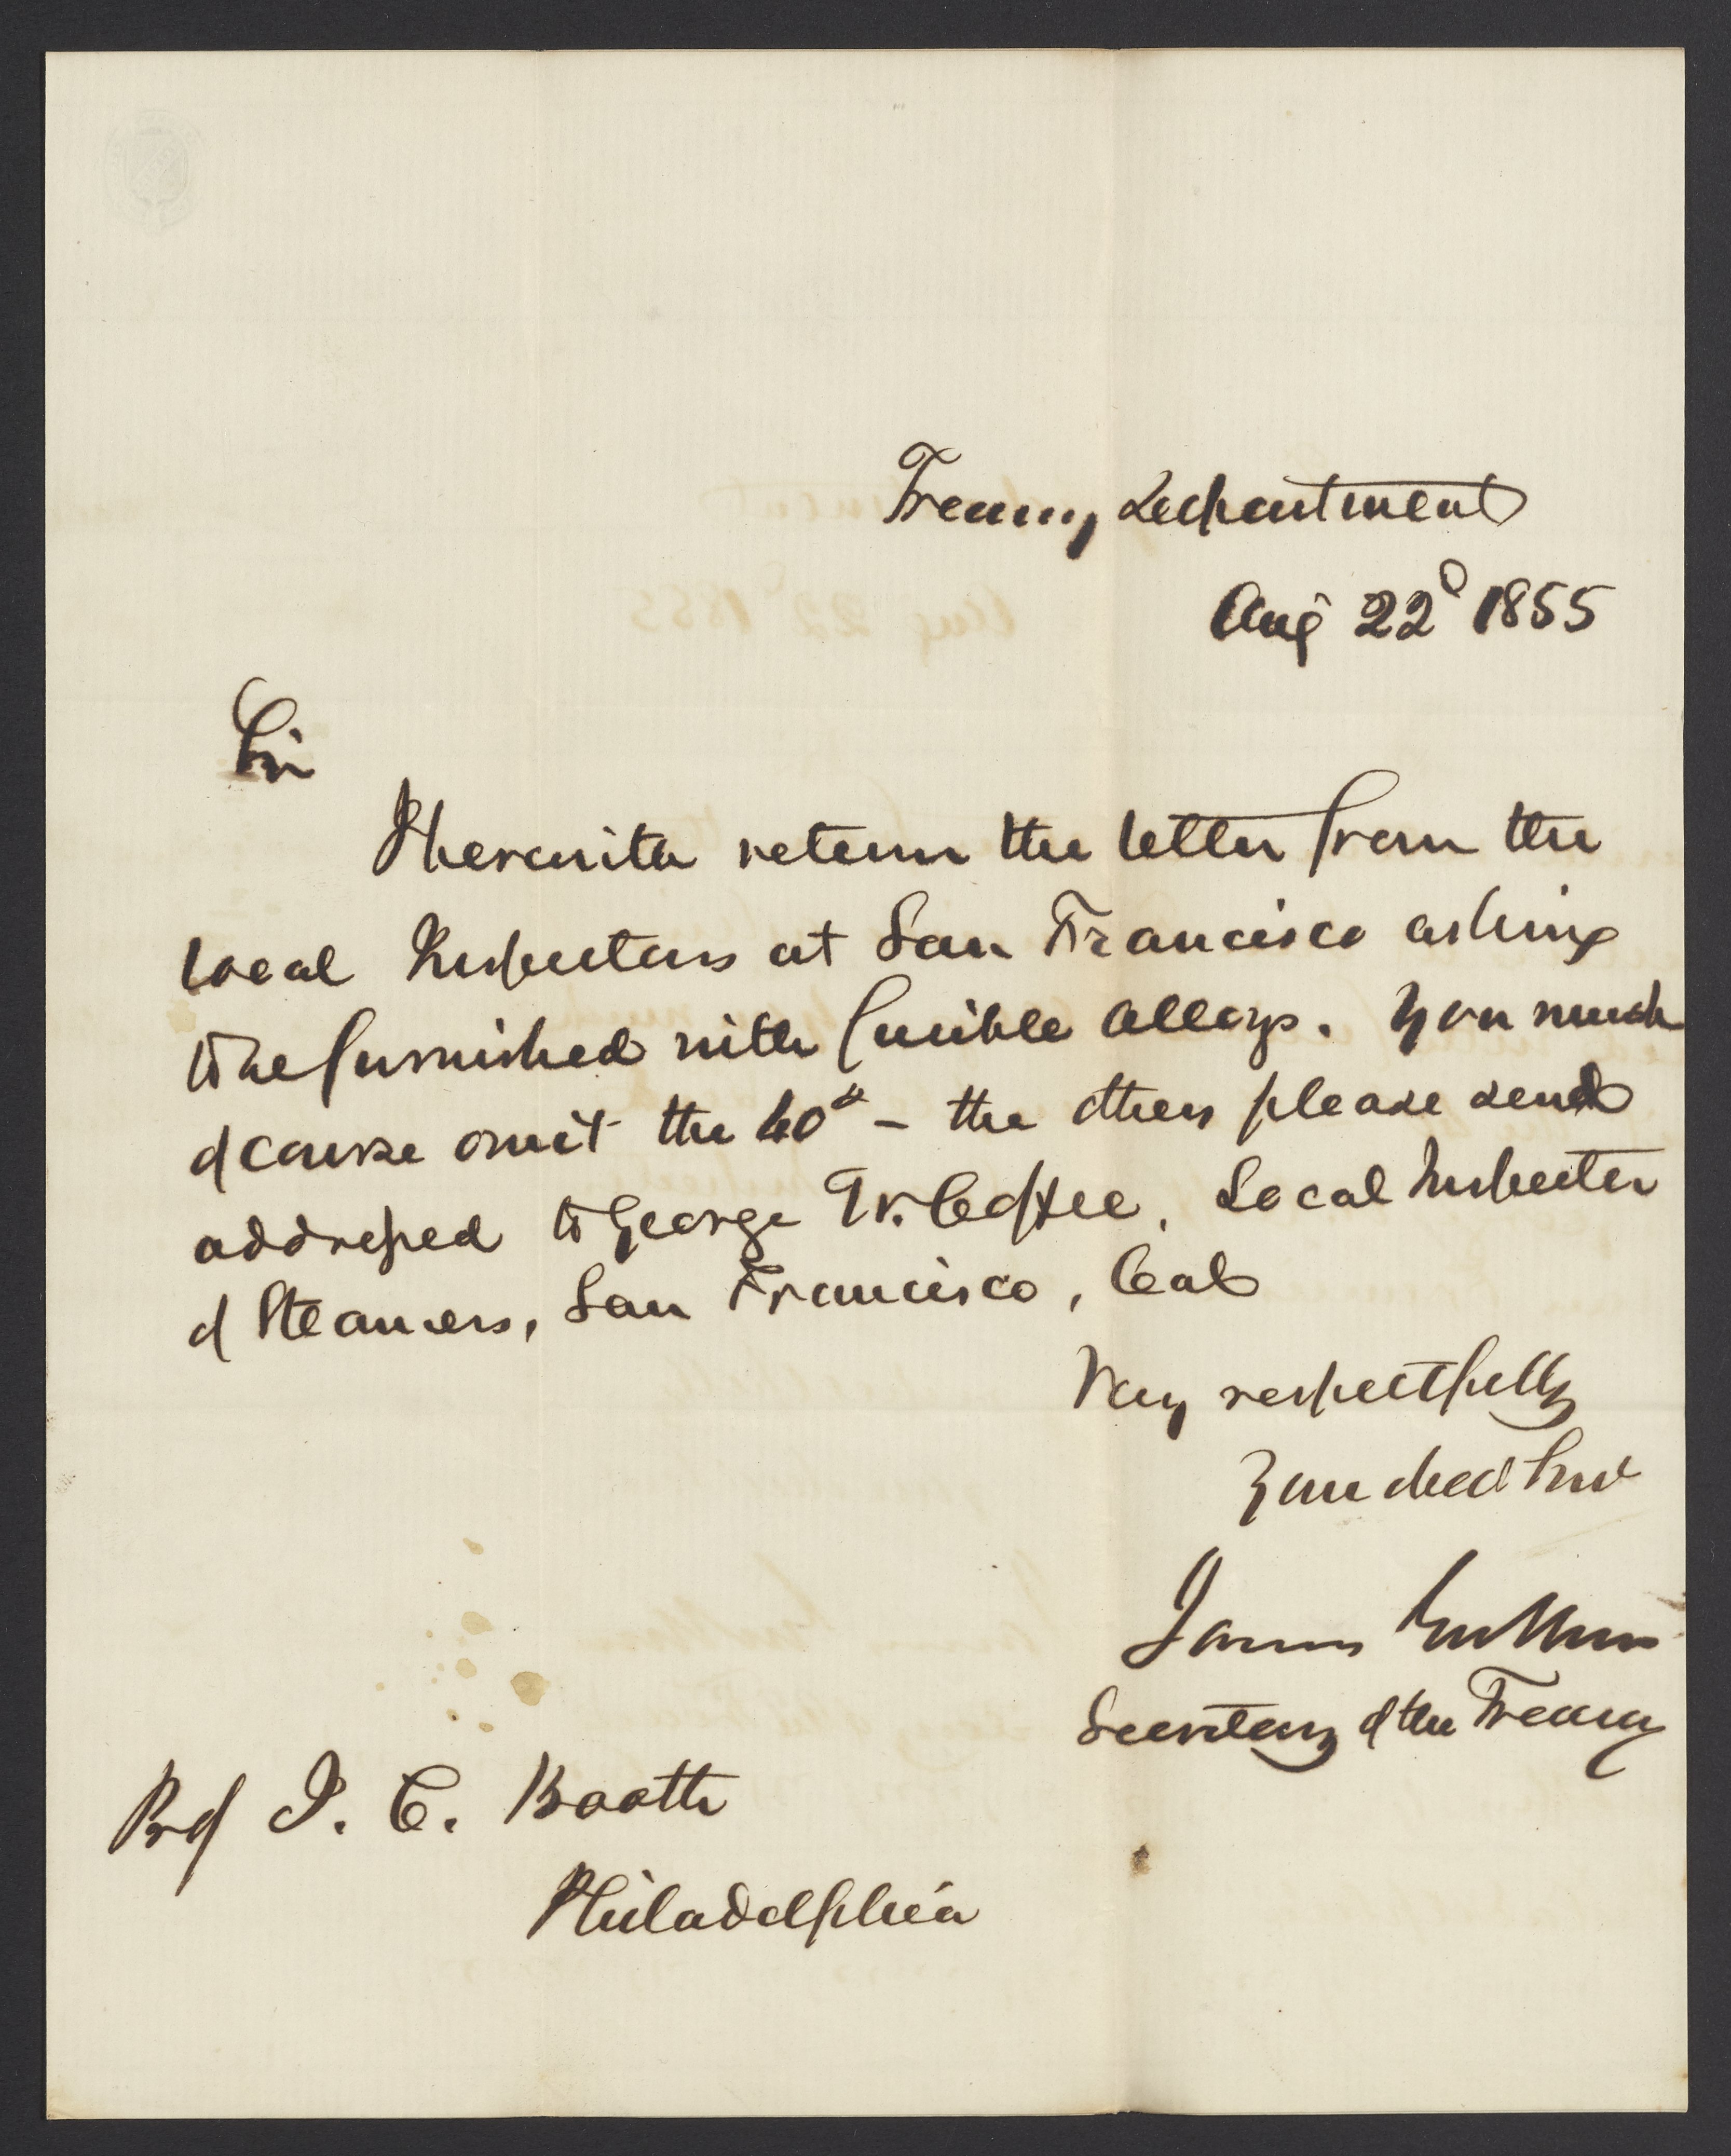 Treasury Department
Aug 22d 1855
Sir
I herewith return the letter from the
local Inspectors at San Francisco asking
to be furnished with fusible alloys. You
of course omit the 40# – the others please send
addressed to George W. Coffee, Local Inspector
of Steamers, San Francisco, Cal
Very respectfully
Your obed Srvt
James Guthrie
Secretary of the Treasury
Prof J. C. Booth
Philadelphia